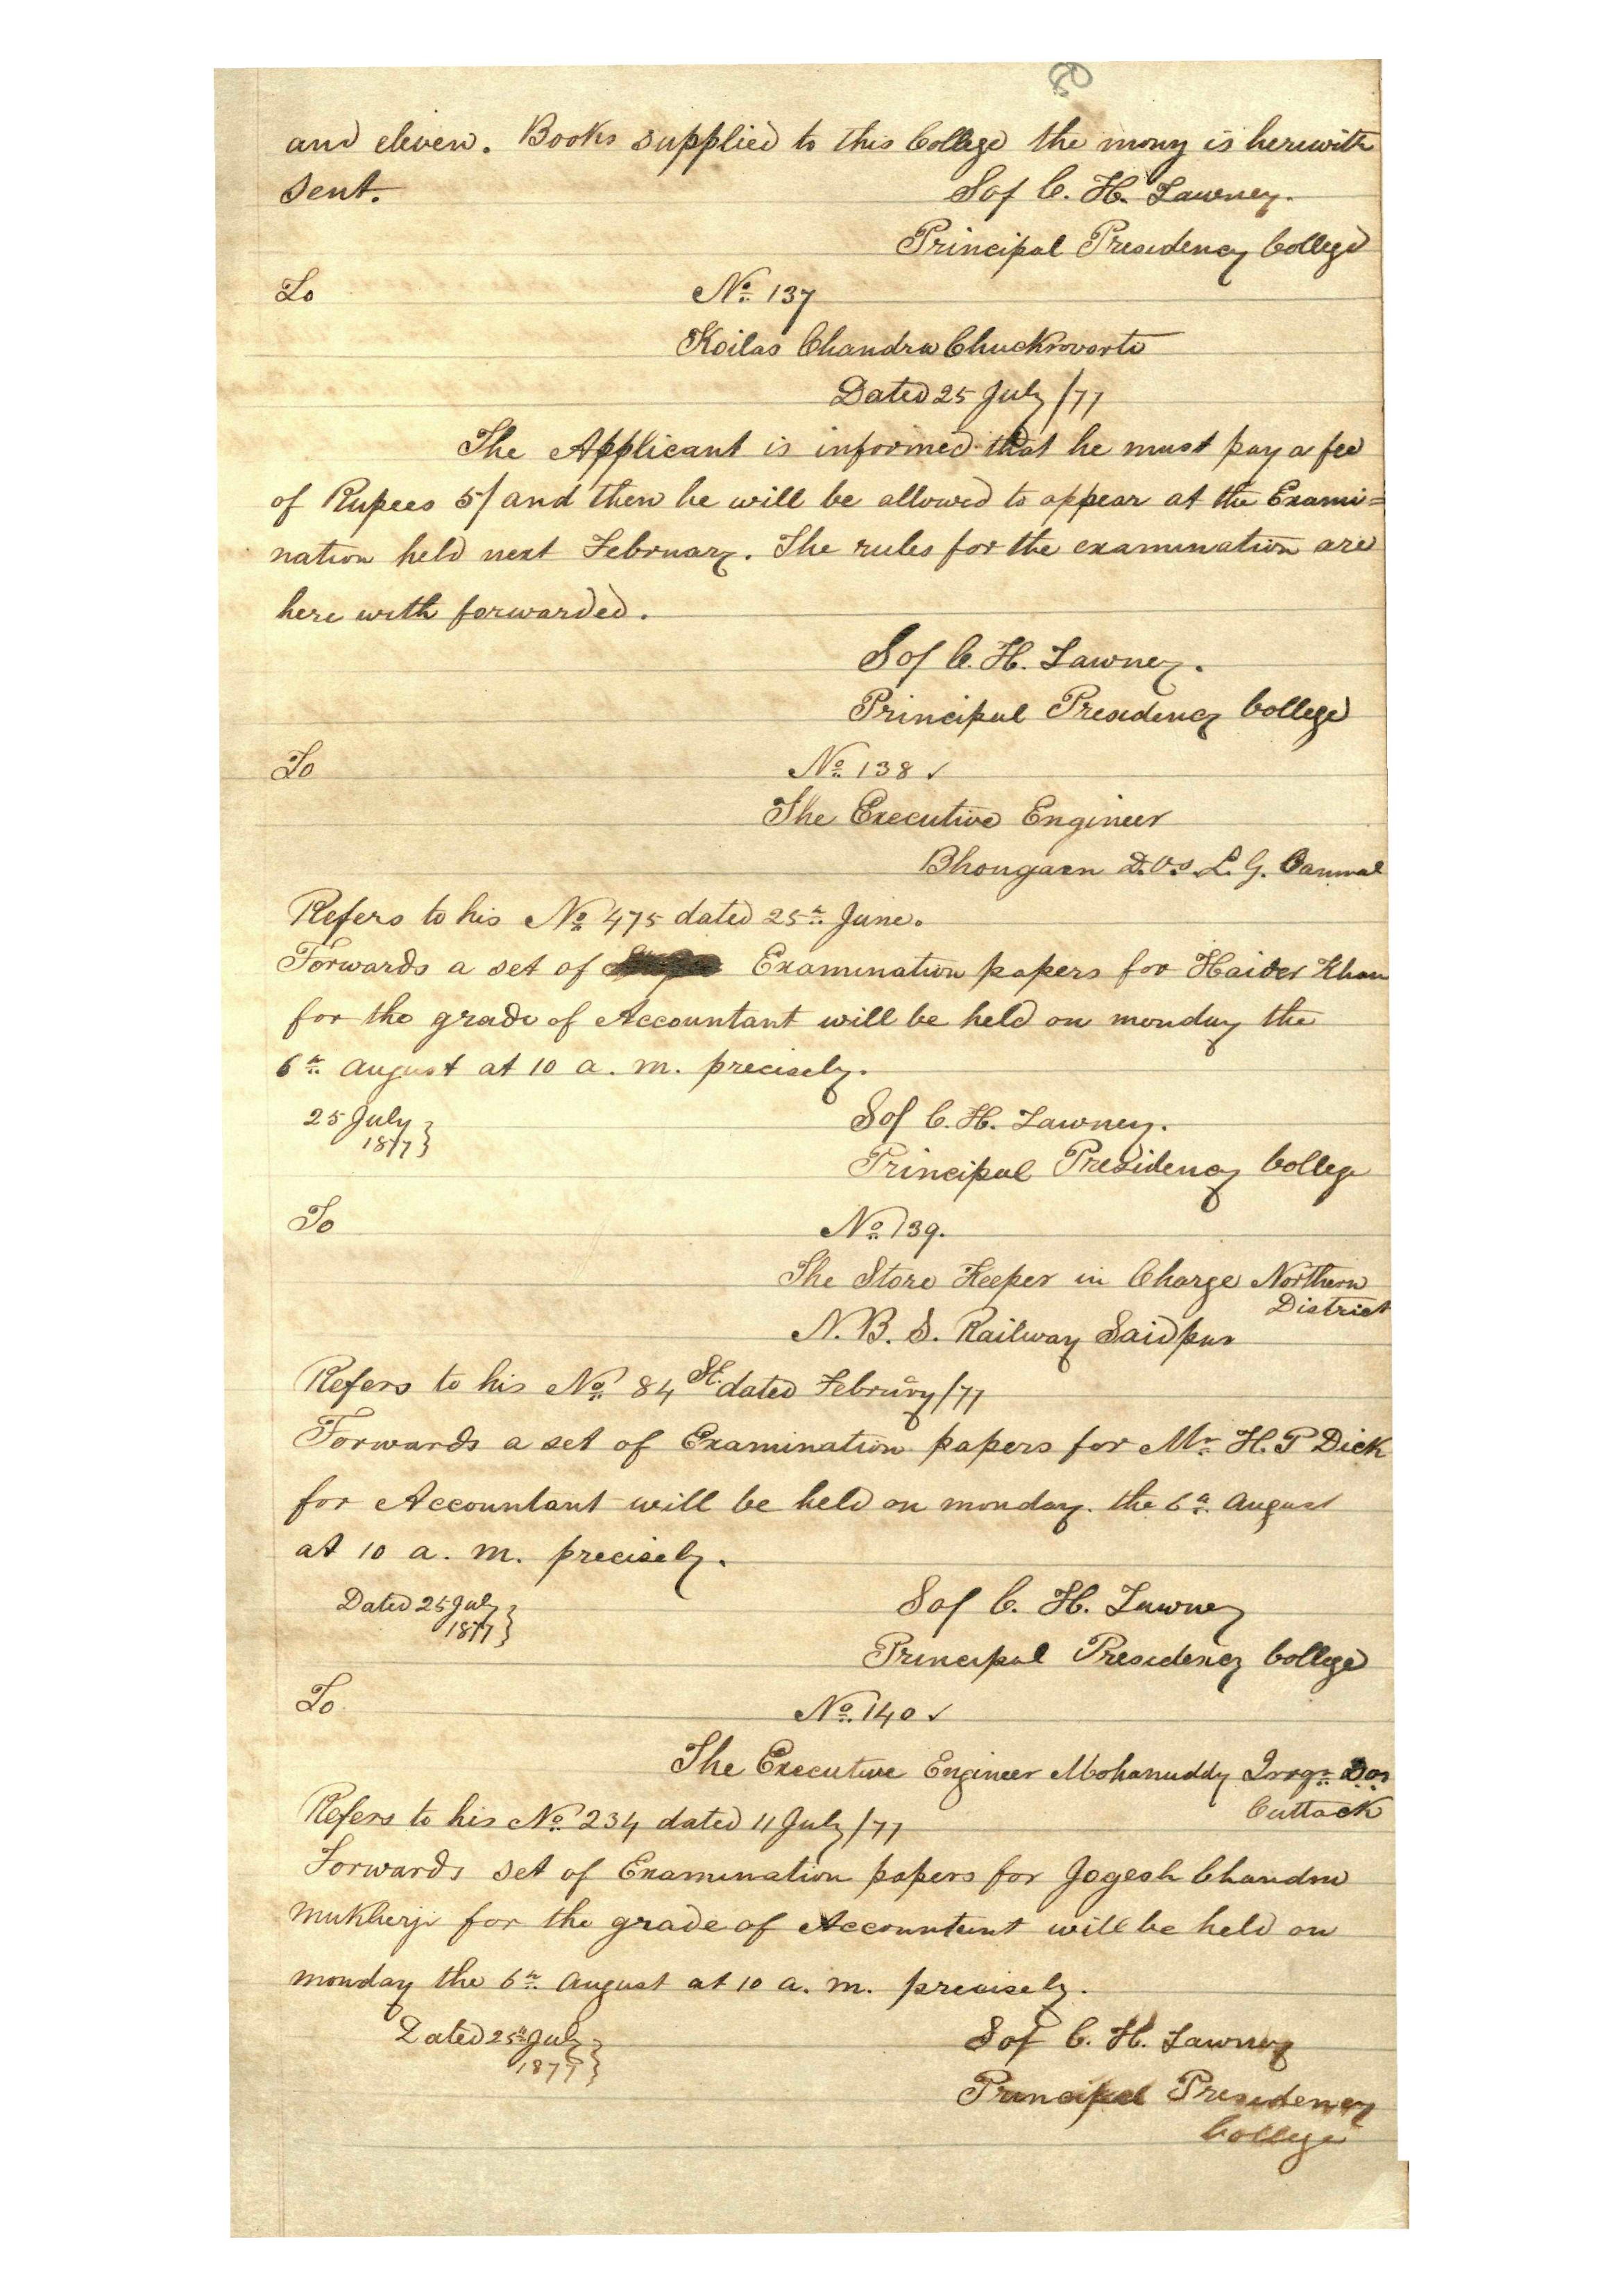 and eleven. Books supplied to this College the mony is herewith
sent.
Sd/ C. H. Tawney.
Principal Presidency College
To No. 137
Koilas Chandra Chuckrovorti
Dated 25 July /77
The Applicant is informed that he must pay a fee
of Rupees 5/ and then he will be allowed to appear at the Exami=
nation held next February. The rules for the examination are
here with forwarded.
Sd/ C. H. Tawney.
Principal Presidency College
To No. 138 ✓
The Executive Engineer
Bhongaon L. G.
Refers to his No. 475 dated 25th June.
Forwards a set of Examination papers for Haider Khan
for the grade of Accountant will be held on monday the
6th August at 10 a. m. precisely.
25 July
1877}
Sd/ C. H. Tawney.
Principal Presidency College
To No. 139.
The Store Keeper in Charge Northern
District
N. B. S. Railway Saidpur
Refers to his No. 84 St. dated February /77
Forwards a set of Examination papers for Mr. H. P Dick
for Accountant will be held on monday. the 6th August
at 10 a. m. precisely.
Dated 25 July
1877}
Sd/ C. H. Tawney
Principal Presidency College
To No. 140 ✓
The Executive Engineer Mohanuddy Irrgn. Don
Cuttack
Refers to his No. 234 dated 11 July /77
Forwards set of Examination papers for Jogesh Chandra
Mukherji for the grade of Accountant will be held on
monday the 6th August at 10 a. m. precisely.
Dated 25th July
1877}
Sd/ C. H. Tawney
Principal Presidency
College